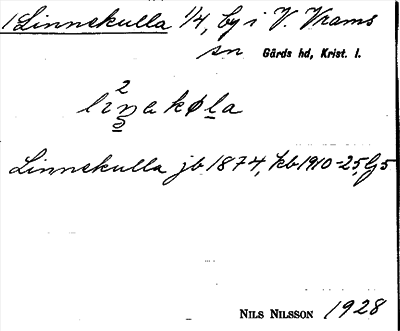 1 Linnekulla 1/4, by i V. Vrams
sn Gärds hd, Krist. l.
2
linakøla
Linnekulla jb 1874, kb 1910-25, G5
NILS NILSSON 1928